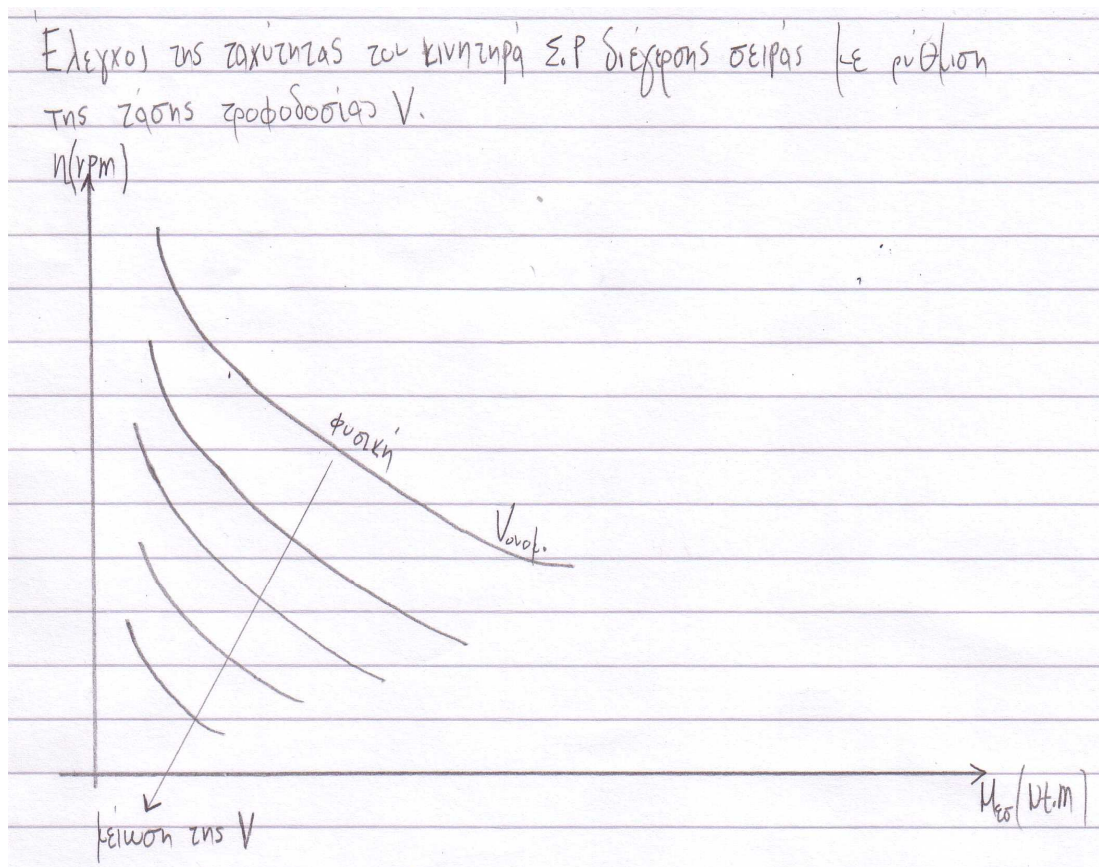 Ελεγχος της ταχύτητας του κινητηρά Σ.Ρ διέγερσης σειράς με ρύθμιση
της τάσης τροφοδοσίας V.
n(rpm)
φυσική
Vονομ.
Mεσ(Nt.m)
μείωση της V